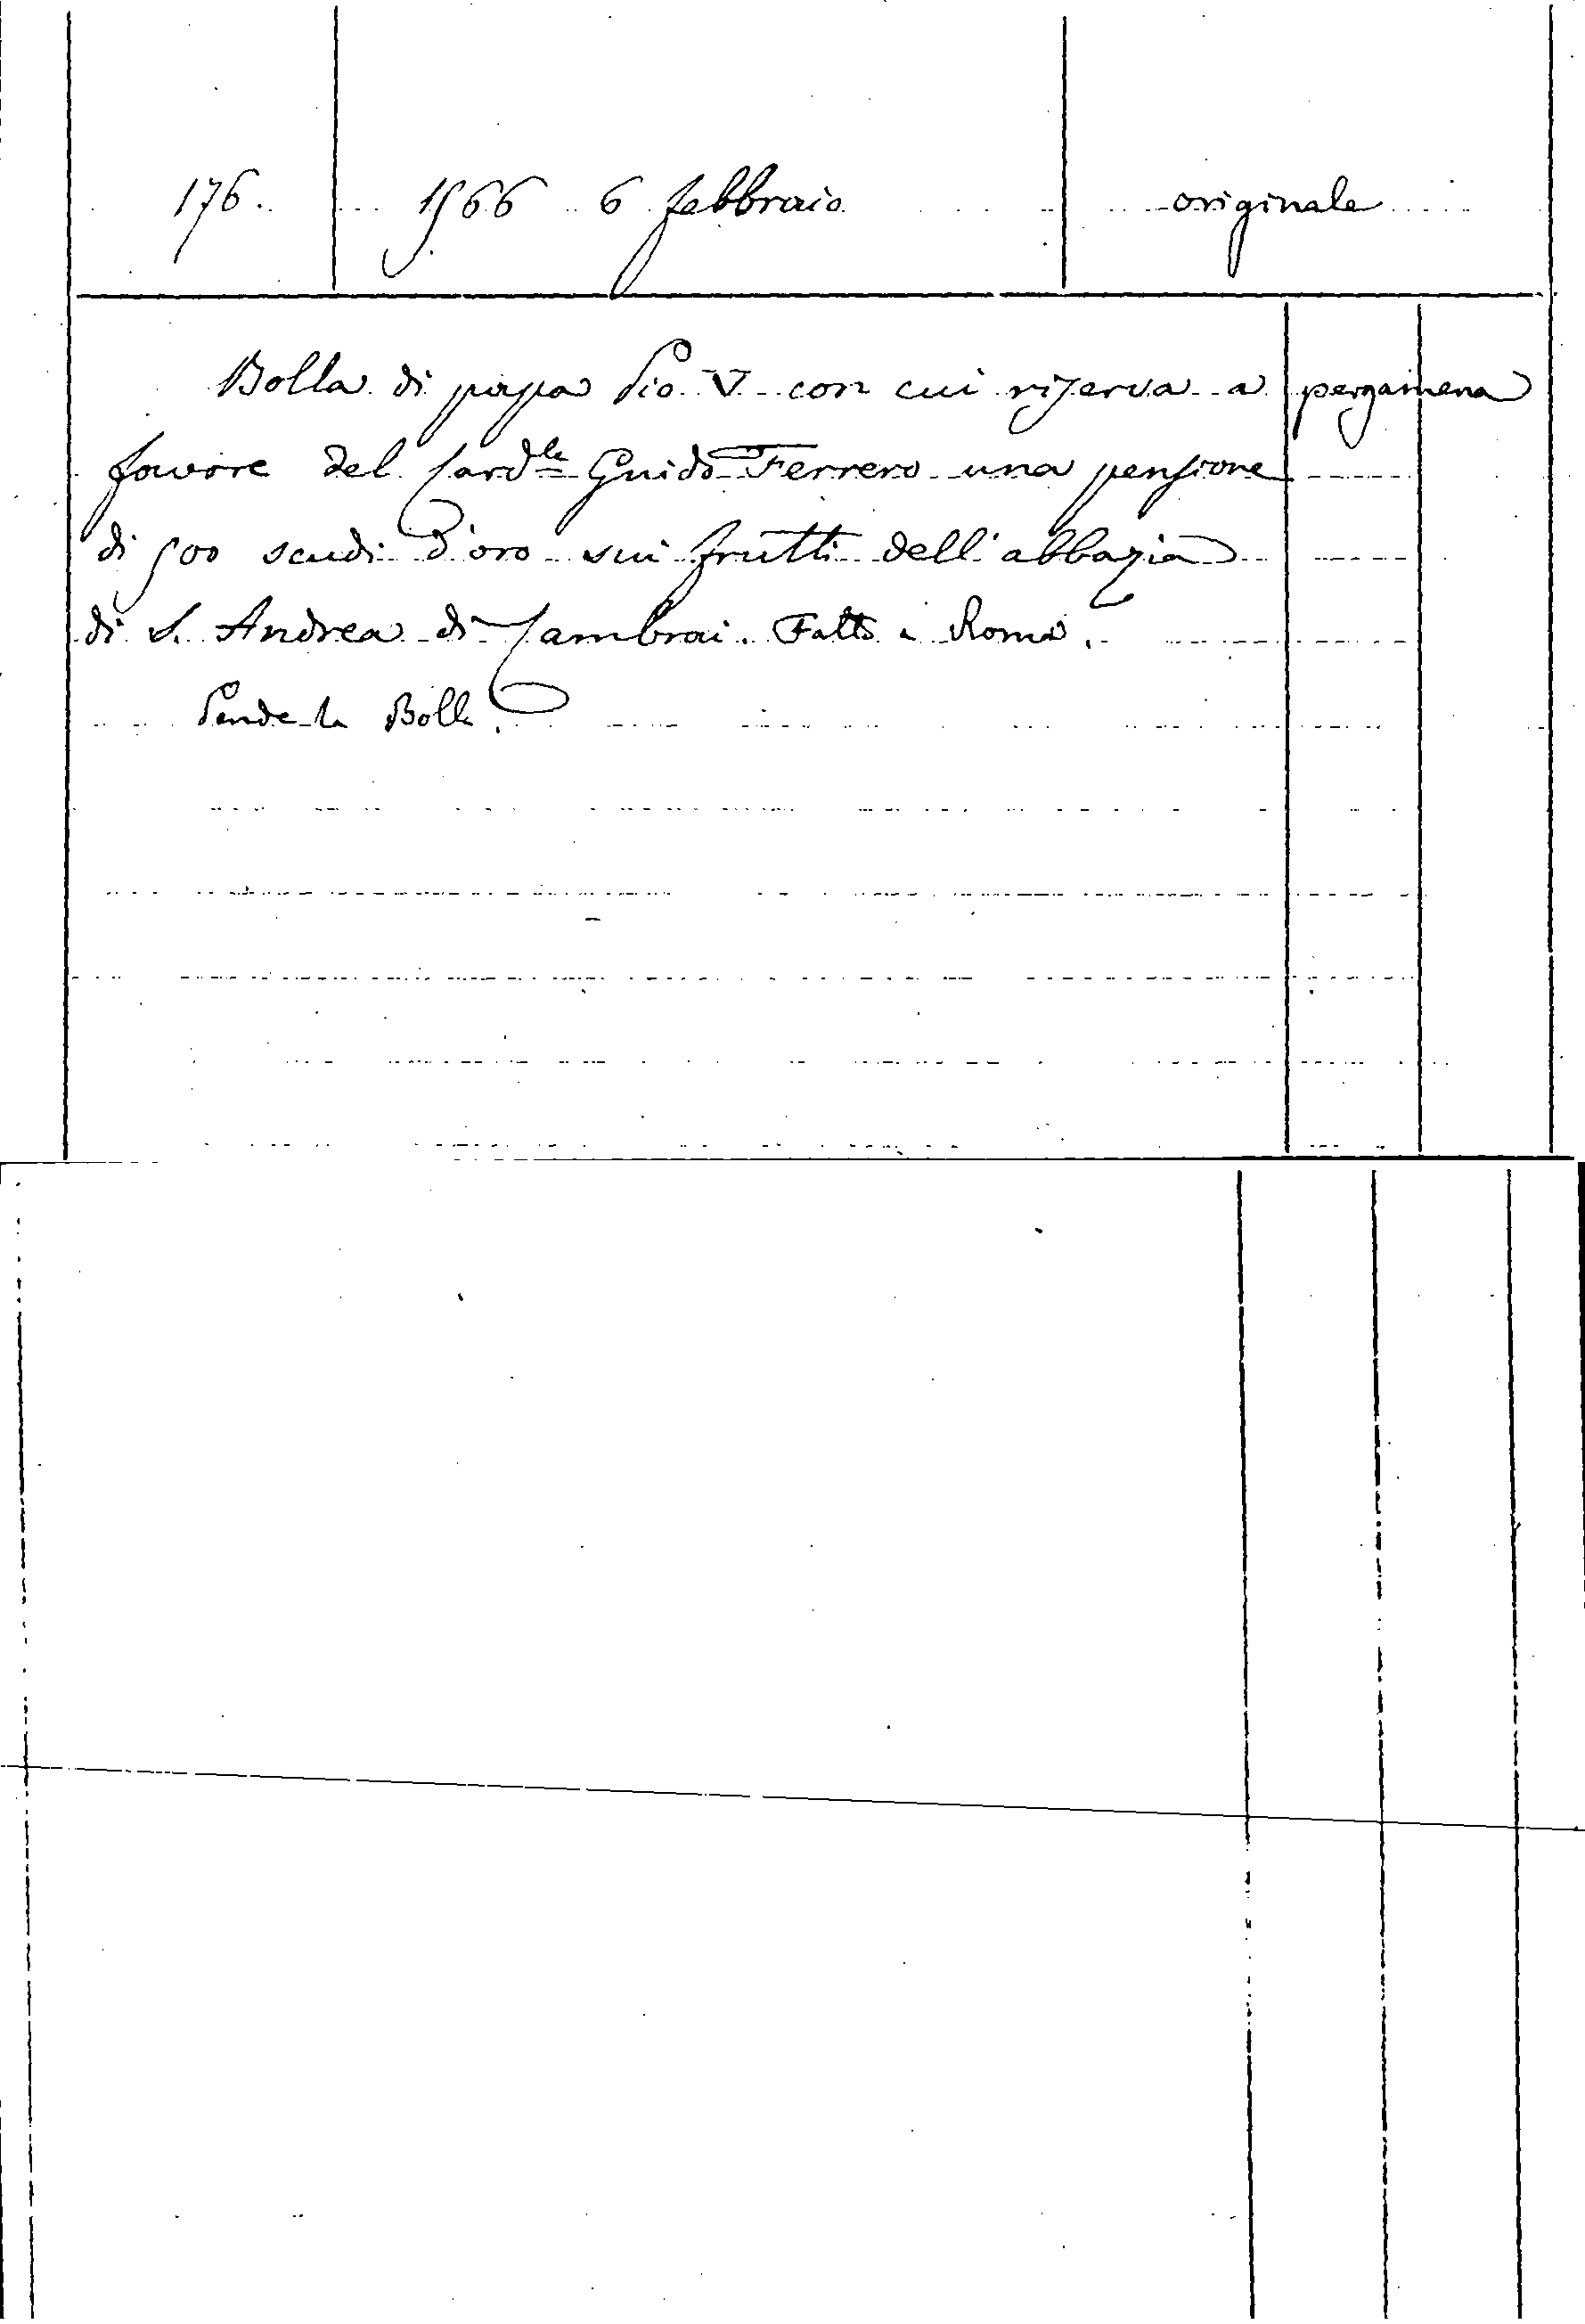 176. 1566 6 febbraio originale
Bolla di papa Pio V con cui riserva a pergamena
favore del Card.le Guido Ferrero una pensione
di 500 scudi d'oro sui frutti dell'abbazia
di S. Andrea di Cambrai. Fatto a Roma.
Pende la Bolla.